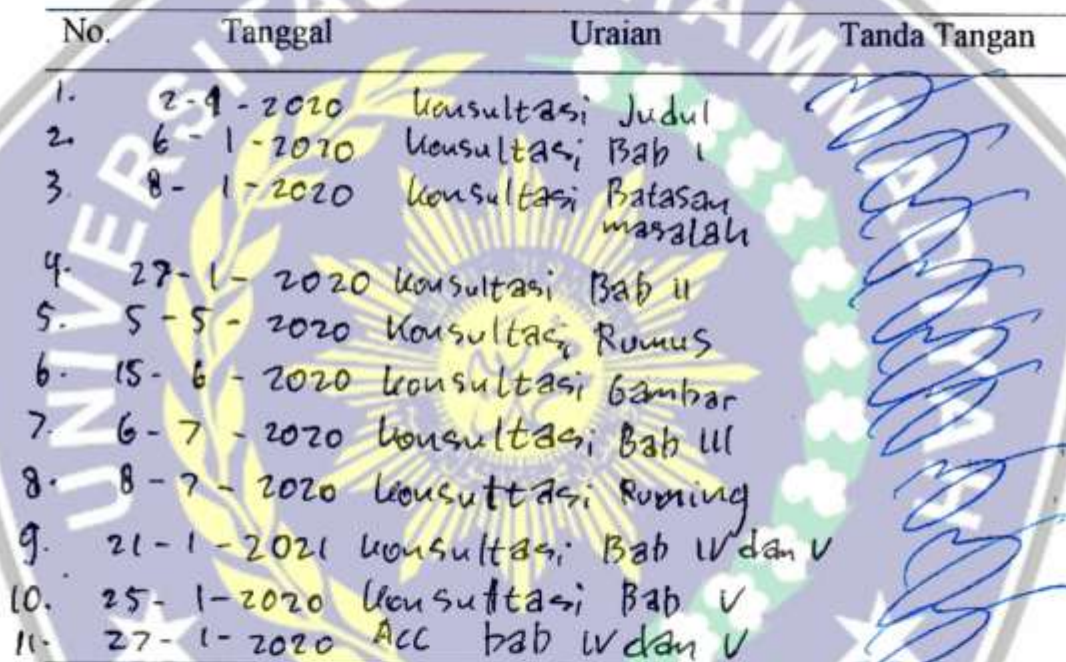 UNIVERSITAS MUHAMMADIYAH
No. Tanggal Uraian Tanda Tangan
1. 2-1-2020 Konsultasi Judul
2. 6-1-2020 Konsultasi Bab I
3. 8-1-2020 Konsultasi Batasan
masalah
4. 27-1-2020 Konsultasi Bab II
5. 5-5-2020 Konsultasi Rumus
6. 15-6-2020 Konsultasi Gambar
7. 6-7-2020 Konsultasi Bab III
8. 8-7-2020 Konsultasi Running
9. 21-1-2021 Konsultasi Bab IV dan V
10. 25-1-2020 Konsultasi Bab V
11. 27-1-2020 Acc bab IV dan V